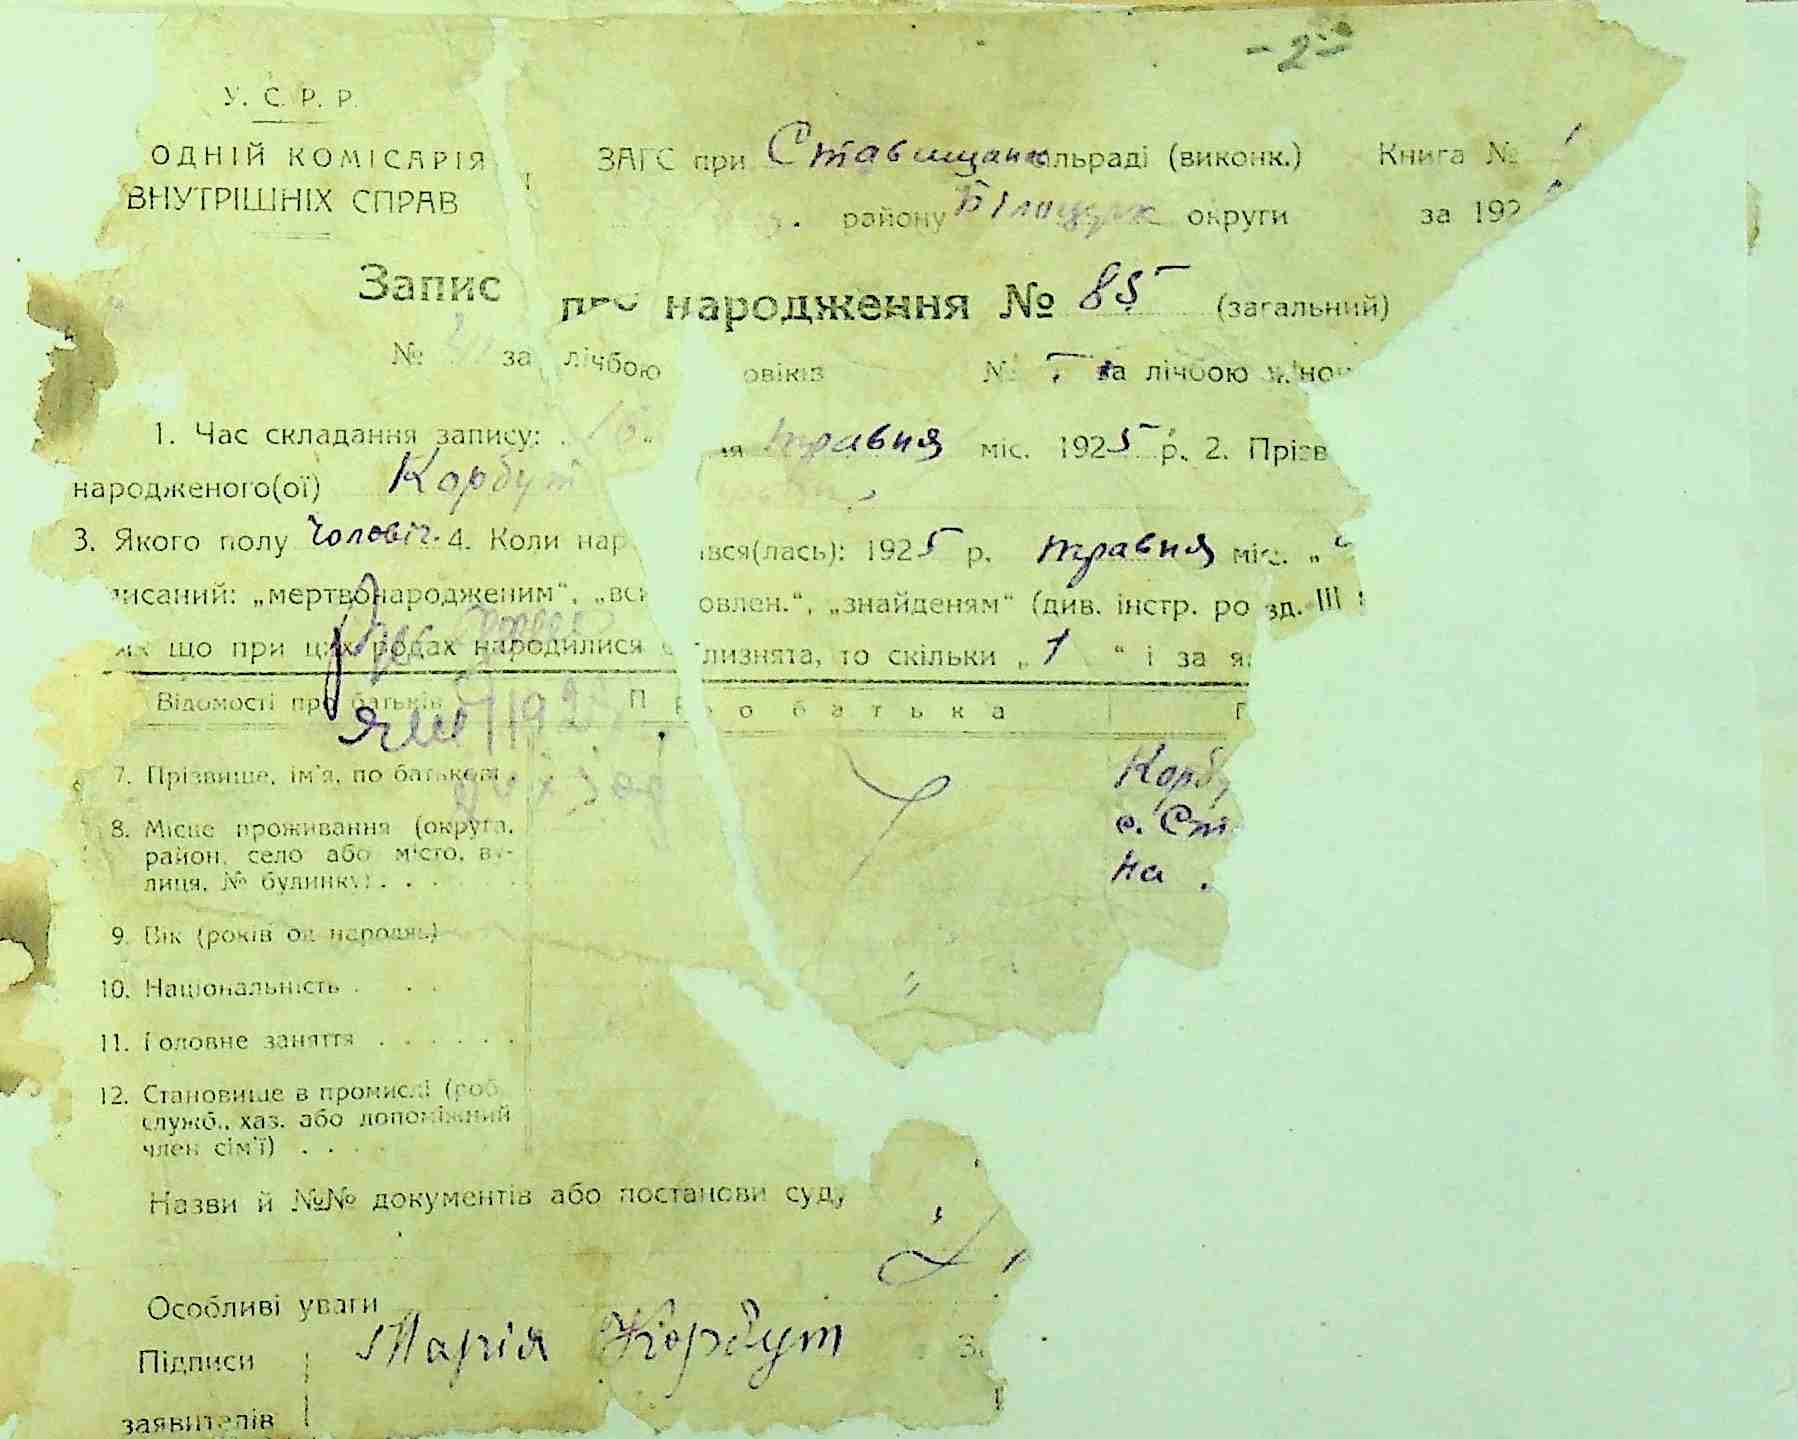 У. С. Р. Р.
ОДНІЙ КОМІСАРІЯ
ВНУТРІШНІХ СПРАВ
ЗАГС при Ставищан льраді (виконк.) Книга №
району Білоцерк округи за 192
Запис про народження № 85 (загальний)
№ за лічбою овіків № за лічбою жіно
1. Час складання запису: 16 ня травня міс. 1925 р. 2. Прізв
народженого(ої) Корбут
3. Якого полу чоловіч. 4. Коли нар вся(лась): 1925 р. травня міс. „
исаний: „мертвонародженим“, „вс овлен.“, „знайденям“ (див. інстр. розд. III
що при цих родах народилися близнята, то скільки „1 “ і за я
Відомості про батьків Про батька
7. Прізвище, ім'я, по батькові Корбу
8. Місце проживання (округа, с. Ст
район, село або місто, ву- на
лиця, № будинку) . . .
9. Вік (років од народж.)
10. Національність . . .
11. Головне заняття . . . . . .
12. Становище в промислі (роб.
служб., хаз. або допоміжний
член сім'ї) . . .
Назви й №№ документів або постанови суду
Особливі уваги
Підписи Марія Корбут
заявителів